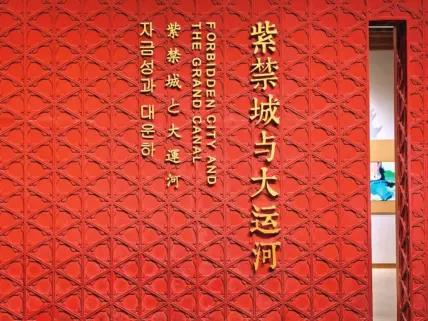 紫禁城与大运河
FORBIDDEN CITY AND
THE GRAND CANAL
紫禁城と大運河
자금성과 대운하